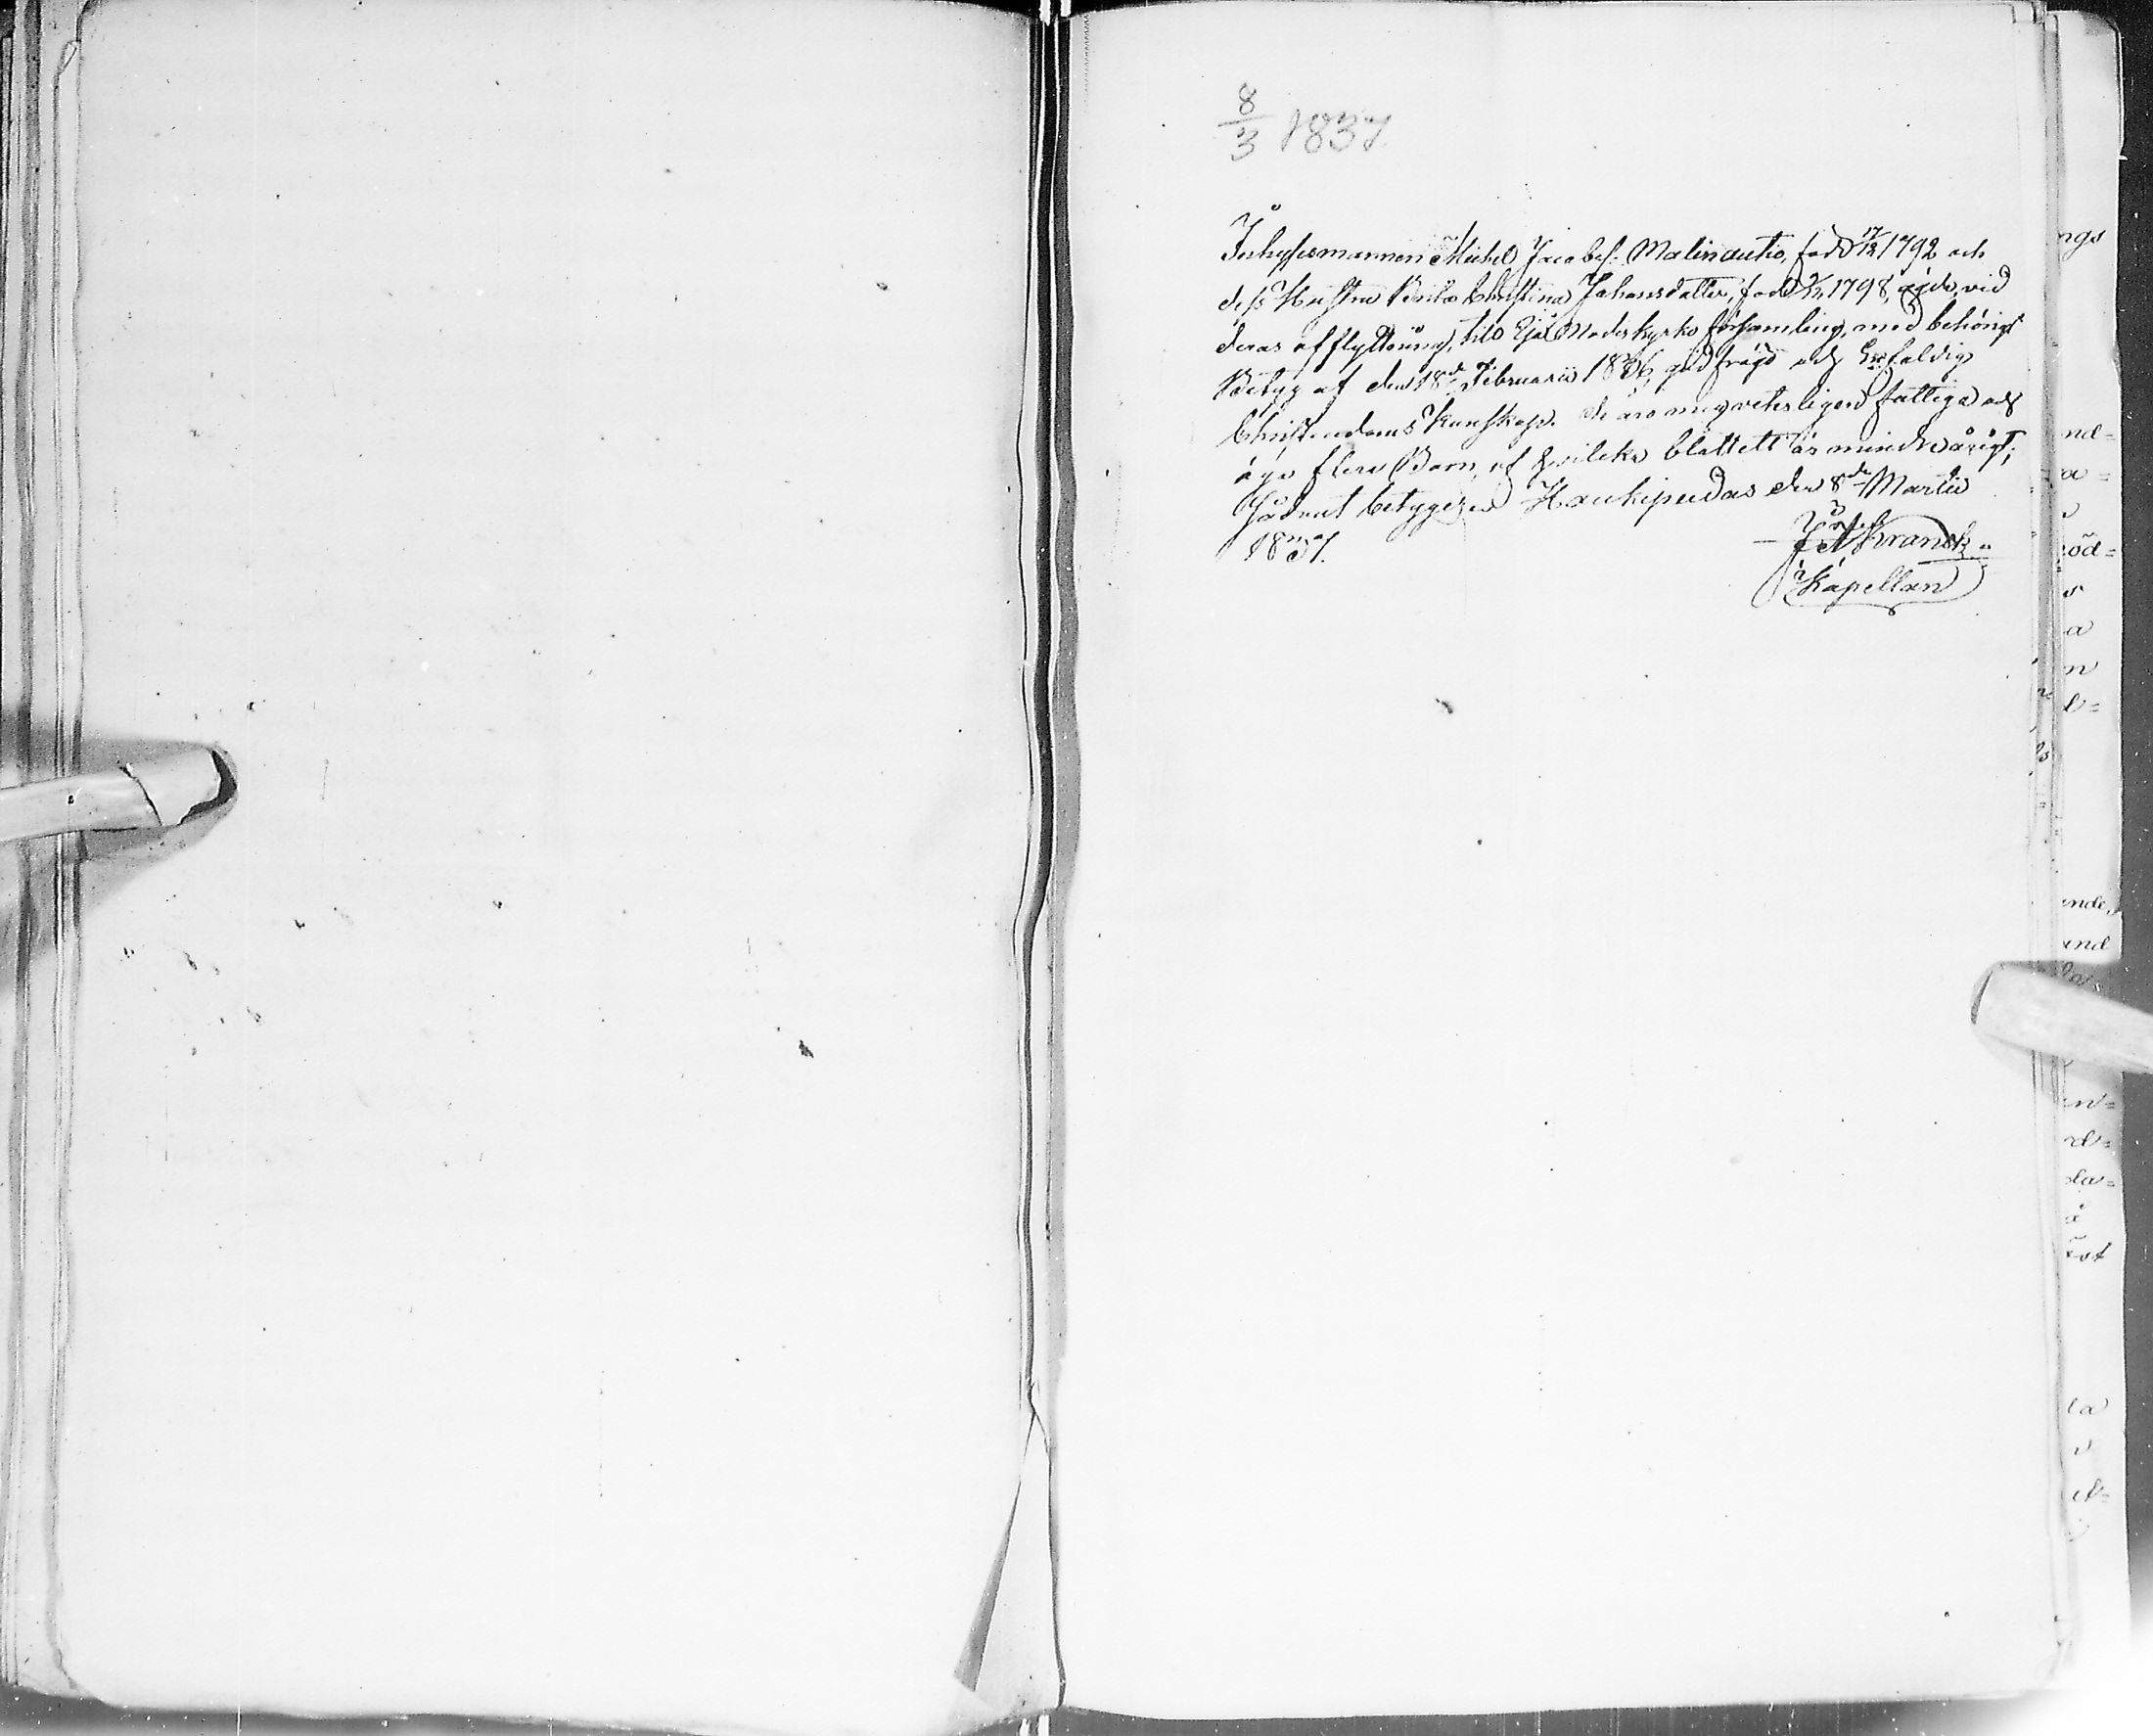 8/3 1837.
Inhysesmannen Michel Jacobss. Malinautio, född 17/12 1792 och
dess Hustru Brita Christina Johansdotter, född 1798, ägde, vid
deras afflyttning, till Ijo Moderkyrko församling, med behörigt
Betyg af den 18de Februarii 1836, god frägd och Enfaldig
Christendoms Kunskap. De äro mig veterligen fattiga och
äga flere Barn, af hvilka blott ett är minderårigt;
Sådant betygeger Haukipudas den 8de Martii
1837.
Kranck
Kapellan
ngs
nd=
a=
öd=
a
n
nde,
und
en=
rd=
la=
å
ta